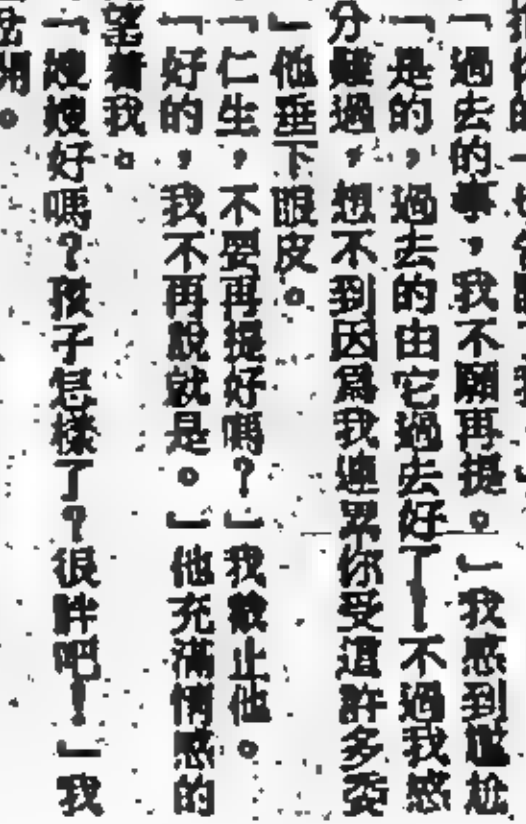 「過去的事，我不願再提。」我感到尷尬
「是的，過去的由它過去好了——不過我感
分難過，想不到因爲我連累你受這許多委
」他垂下眼皮。
「仁生，不要再提好嗎？」我截止他。
「好的，我不再說就是。」他充滿情感的
望着我。
「嫂嫂好嗎？孩子怎樣了？很胖吧！」我